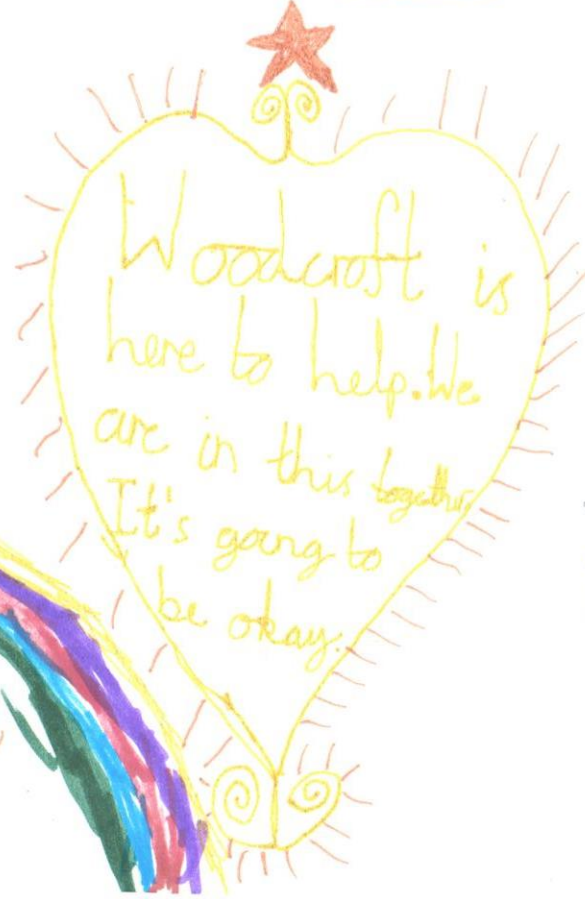 Woodcroft is
here to help. We
are in this together.
It's going to
be okay.